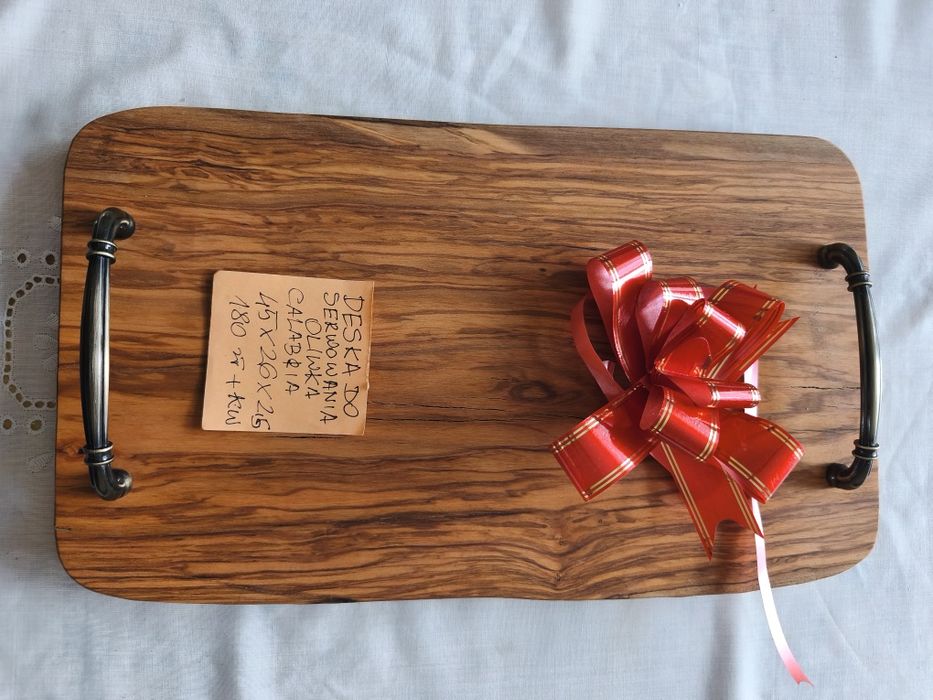 DESKA DO
SERWOWANIA
OLIWKA
CALABRIA
45 x 26 x 2,5
180 zł + KW